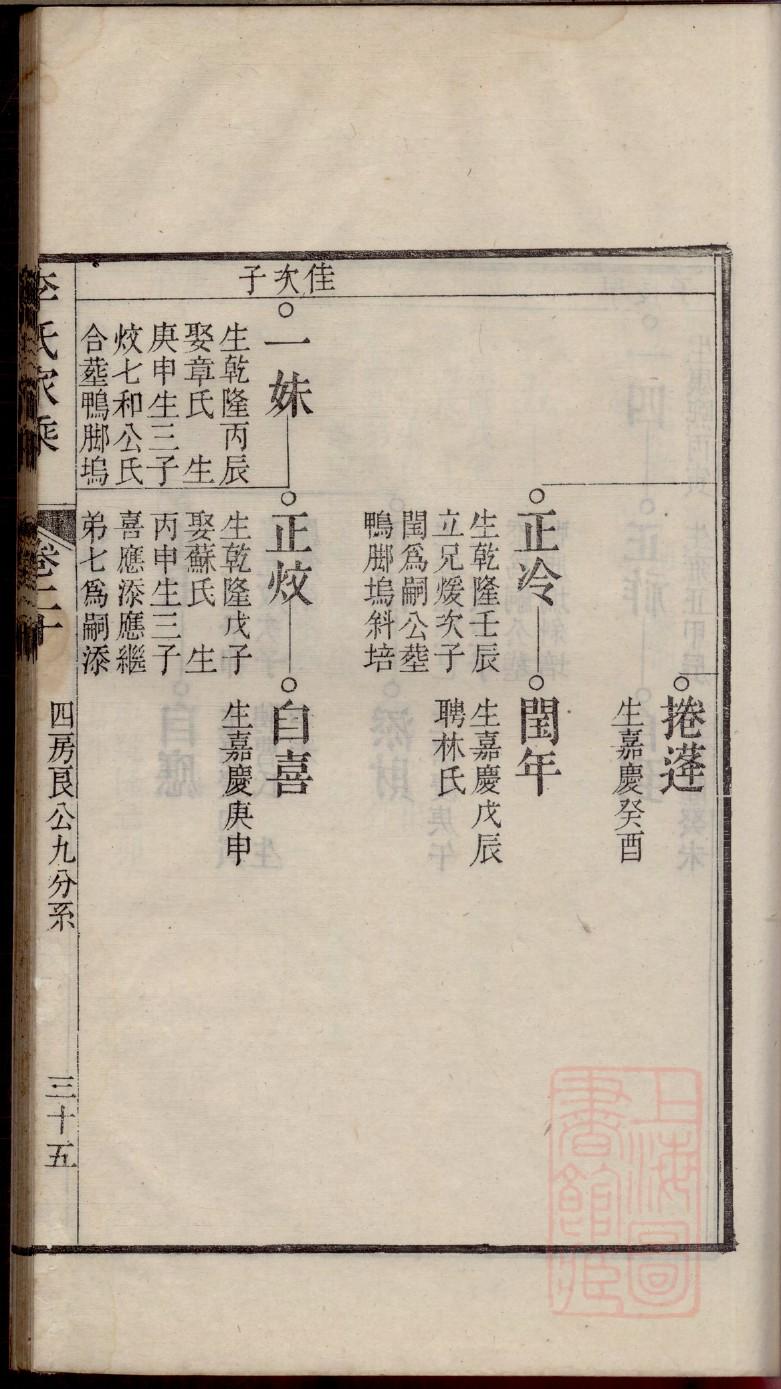 捲蓬
生嘉慶癸酉
正冷
生乾隆壬辰
立兄煖次子
閏爲嗣公塟
鴨脚塢斜培
閏年
生嘉慶戊辰
聘林氏
佳次子
一妹
生乾隆丙辰
娶章氏 生
庚申生三子
炆七和公氏
合塟鴨脚塢
正炆
生乾隆戊子
娶蘇氏 生
丙申生三子
喜應添應繼
弟七爲嗣添
自喜
生嘉慶庚申
李氏家乘
卷二十
四房良公九分系
三十五
上海圖書館藏